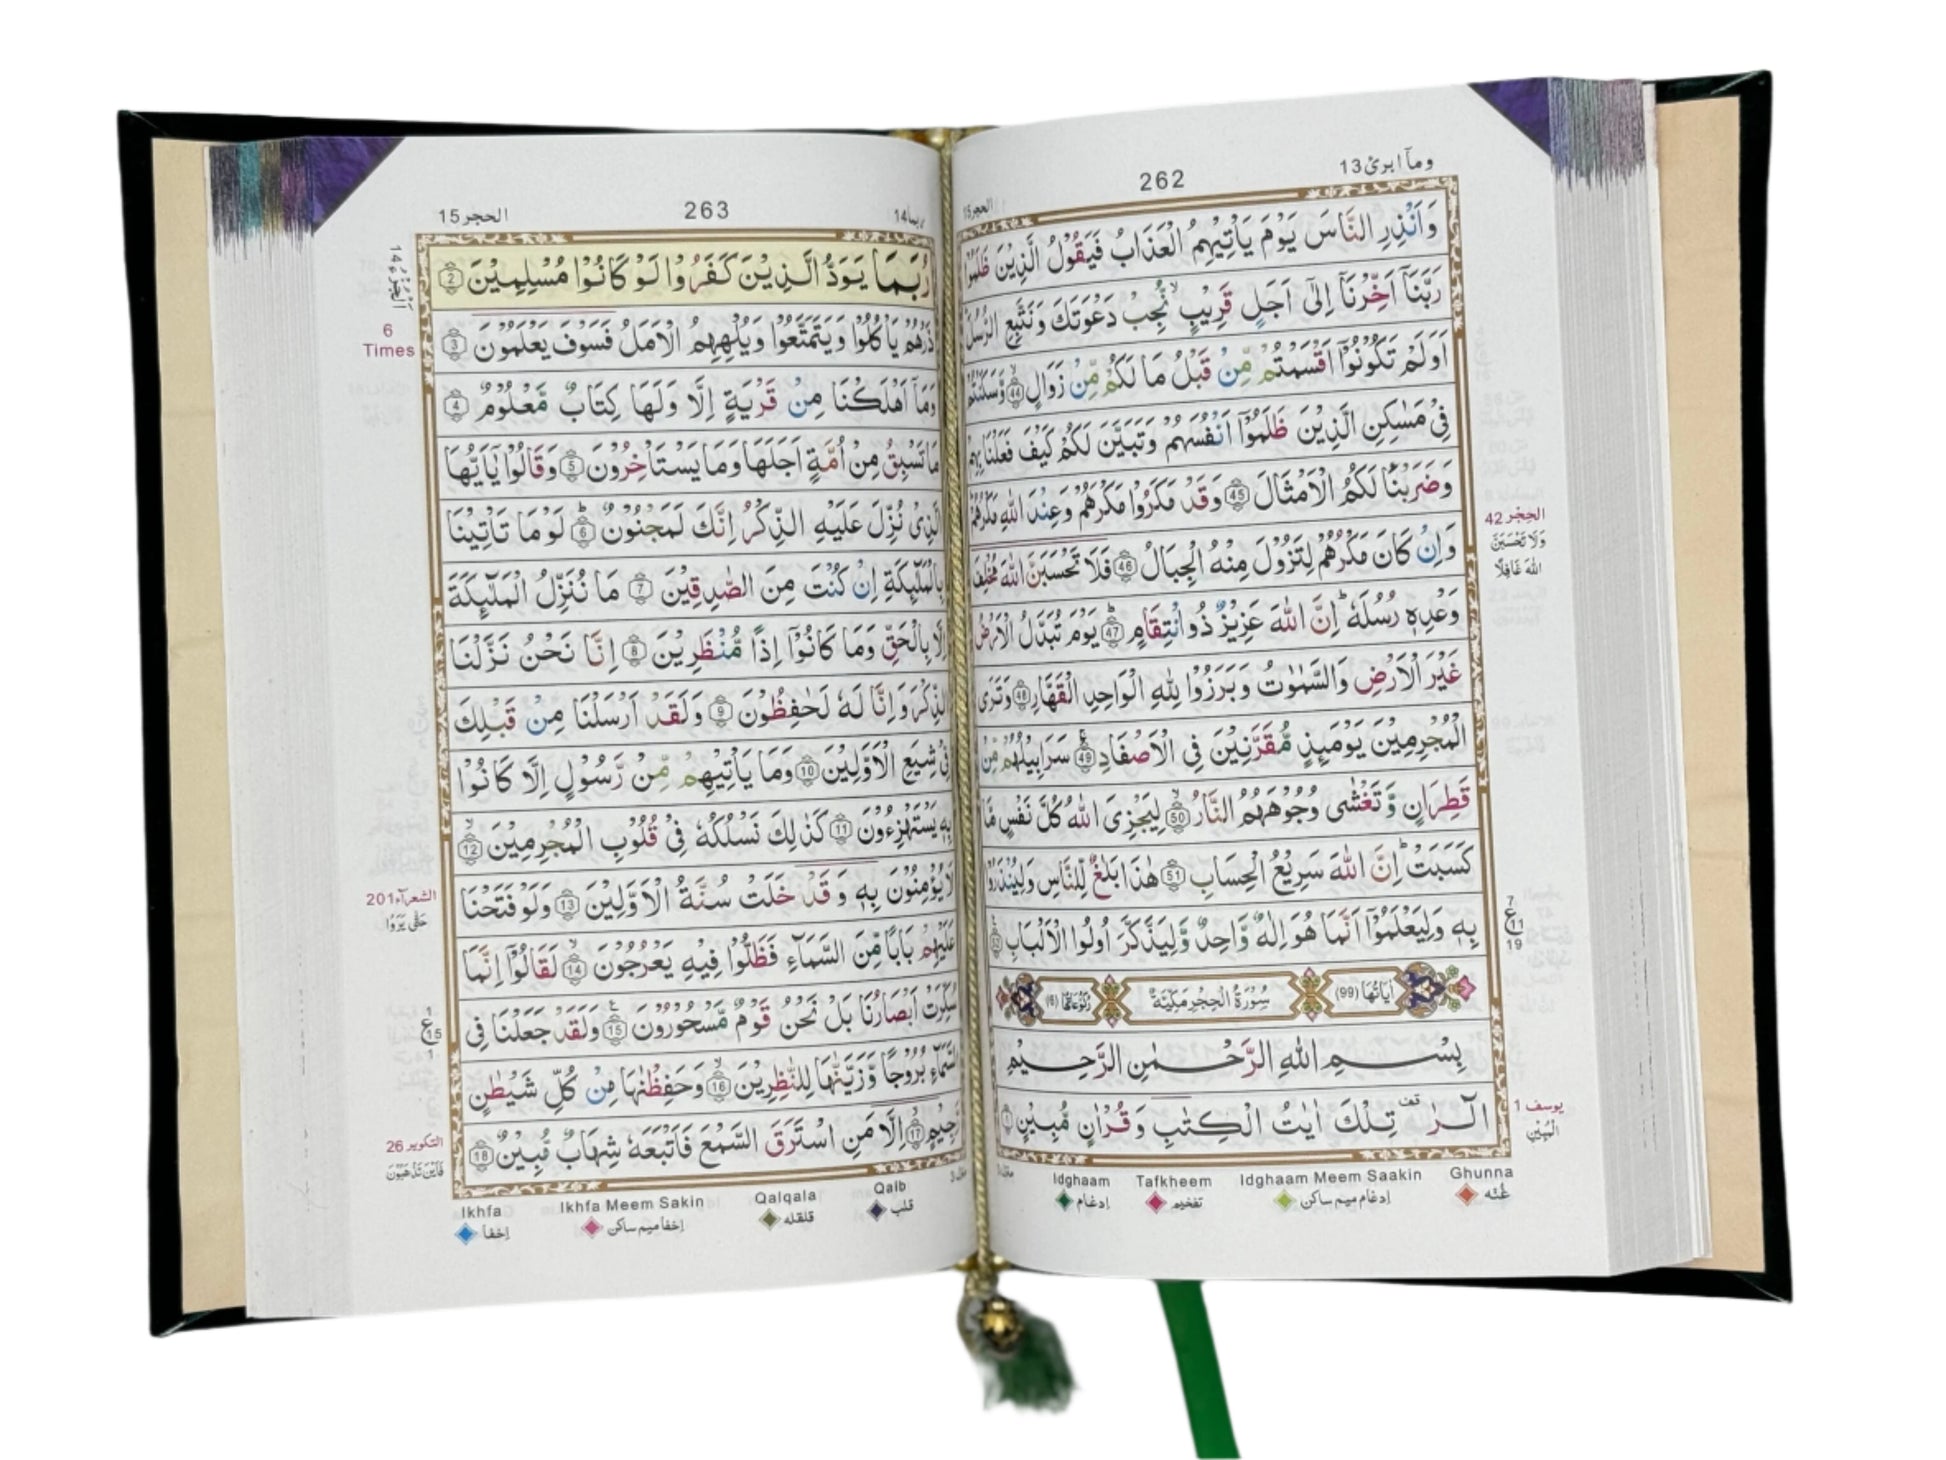 وماۤ ابرئ 13
262
الحجر 15
وَاَنْذِرِ النَّاسَ يَوْمَ يَاْتِيْهِمُ الْعَذَابُ فَيَقُوْلُ الَّذِيْنَ ظَلَمُوْا
رَبَّنَاۤ اَخِّرْنَاۤ اِلٰۤى اَجَلٍ قَرِيْبٍ ۙ نُّجِبْ دَعْوَتَكَ وَنَتَّبِعِ الرُّسُلَ
اَوَلَمْ تَكُوْنُوْۤا اَقْسَمْتُمْ مِّنْ قَبْلُ مَا لَكُمْ مِّنْ زَوَالٍ ۙ 44 وَّسَكَنْتُمْ
فِيْ مَسٰكِنِ الَّذِيْنَ ظَلَمُوْۤا اَنْفُسَهُمْ وَتَبَيَّنَ لَكُمْ كَيْفَ فَعَلْنَا بِهِمْ
وَضَرَبْنَا لَكُمُ الْاَمْثَالَ 45 وَقَدْ مَكَرُوْا مَكْرَهُمْ وَعِنْدَ اللّٰهِ مَكْرُهُمْ
وَاِنْ كَانَ مَكْرُهُمْ لِتَزُوْلَ مِنْهُ الْجِبَالُ 46 فَلَا تَحْسَبَنَّ اللّٰهَ مُخْلِفَ
وَعْدِهٖ رُسُلَهٗ ؕ اِنَّ اللّٰهَ عَزِيْزٌ ذُو انْتِقَامٍ ؕ 47 يَوْمَ تُبَدَّلُ الْاَرْضُ
غَيْرَ الْاَرْضِ وَالسَّمٰوٰتُ وَبَرَزُوْا لِلّٰهِ الْوَاحِدِ الْقَهَّارِ 48 وَتَرَى
الْمُجْرِمِيْنَ يَوْمَئِذٍ مُّقَرَّنِيْنَ فِي الْاَصْفَادِ ۚ 49 سَرَابِيْلُهُمْ مِّنْ
قَطِرَانٍ وَّتَغْشٰى وُجُوْهَهُمُ النَّارُ ۙ 50 لِيَجْزِيَ اللّٰهُ كُلَّ نَفْسٍ مَّا
كَسَبَتْ ؕ اِنَّ اللّٰهَ سَرِيْعُ الْحِسَابِ 51 هٰذَا بَلٰغٌ لِّلنَّاسِ وَلِيُنْذَرُوْا
بِهٖ وَلِيَعْلَمُوْۤا اَنَّمَا هُوَ اِلٰهٌ وَّاحِدٌ وَّلِيَذَّكَّرَ اُولُوا الْاَلْبَابِ 52
اٰيَاتُهَا (99) سُوْرَةُ الْحِجْرِ مَكِّيَّةٌ رُكُوْعَاتُهَا (6)
بِسْمِ اللّٰهِ الرَّحْمٰنِ الرَّحِيْمِ
الٓرٰ ۫ تِلْكَ اٰيٰتُ الْكِتٰبِ وَقُرْاٰنٍ مُّبِيْنٍ 1
الحِجْر 42
وَلَا تَحْسَبَنَّ
اللّٰهَ غَافِلًا
7
ع 11
19
يوسف 1
الْمُبِيْنِ
Ghunna
غُنّه
Idghaam Meem Saakin
إدغام ميم ساكن
Tafkheem
تفخيم
Idghaam
إدغام
ربما 14
263
الحجر 15
رُبَمَا يَوَدُّ الَّذِيْنَ كَفَرُوْا لَوْ كَانُوْا مُسْلِمِيْنَ 2
ذَرْهُمْ يَاْكُلُوْا وَيَتَمَتَّعُوْا وَيُلْهِهِمُ الْاَمَلُ فَسَوْفَ يَعْلَمُوْنَ 3
وَمَاۤ اَهْلَكْنَا مِنْ قَرْيَةٍ اِلَّا وَلَهَا كِتَابٌ مَّعْلُوْمٌ 4
مَا تَسْبِقُ مِنْ اُمَّةٍ اَجَلَهَا وَمَا يَسْتَاْخِرُوْنَ 5 وَقَالُوْا يٰۤاَيُّهَا
الَّذِيْ نُزِّلَ عَلَيْهِ الذِّكْرُ اِنَّكَ لَمَجْنُوْنٌ ؕ 6 لَوْ مَا تَاْتِيْنَا
بِالْمَلٰٓئِكَةِ اِنْ كُنْتَ مِنَ الصّٰدِقِيْنَ 7 مَا نُنَزِّلُ الْمَلٰٓئِكَةَ
اِلَّا بِالْحَقِّ وَمَا كَانُوْۤا اِذًا مُّنْظَرِيْنَ 8 اِنَّا نَحْنُ نَزَّلْنَا
الذِّكْرَ وَاِنَّا لَهٗ لَحٰفِظُوْنَ 9 وَلَقَدْ اَرْسَلْنَا مِنْ قَبْلِكَ
فِيْ شِيَعِ الْاَوَّلِيْنَ 10 وَمَا يَاْتِيْهِمْ مِّنْ رَّسُوْلٍ اِلَّا كَانُوْا
بِهٖ يَسْتَهْزِءُوْنَ 11 كَذٰلِكَ نَسْلُكُهٗ فِيْ قُلُوْبِ الْمُجْرِمِيْنَ ۙ 12
لَا يُؤْمِنُوْنَ بِهٖ وَقَدْ خَلَتْ سُنَّةُ الْاَوَّلِيْنَ 13 وَلَوْ فَتَحْنَا
عَلَيْهِمْ بَابًا مِّنَ السَّمَآءِ فَظَلُّوْا فِيْهِ يَعْرُجُوْنَ ۙ 14 لَقَالُوْۤا اِنَّمَا
سُكِّرَتْ اَبْصَارُنَا بَلْ نَحْنُ قَوْمٌ مَّسْحُوْرُوْنَ 15 وَلَقَدْ جَعَلْنَا فِي
السَّمَآءِ بُرُوْجًا وَّزَيَّنّٰهَا لِلنّٰظِرِيْنَ ۙ 16 وَحَفِظْنٰهَا مِنْ كُلِّ شَيْطٰنٍ
رَّجِيْمٍ ۙ 17 اِلَّا مَنِ اسْتَرَقَ السَّمْعَ فَاَتْبَعَهٗ شِهَابٌ مُّبِيْنٌ 18
6
Times
الشعرآء 201
حَتّٰى يَرَوُا
1
ع 15
1
التكوير 26
فَاَيْنَ تَذْهَبُوْنَ
Qalb
قلب
Qalqala
قلقله
Ikhfa Meem Sakin
إخفا ميم ساكن
Ikhfa
إخفأ